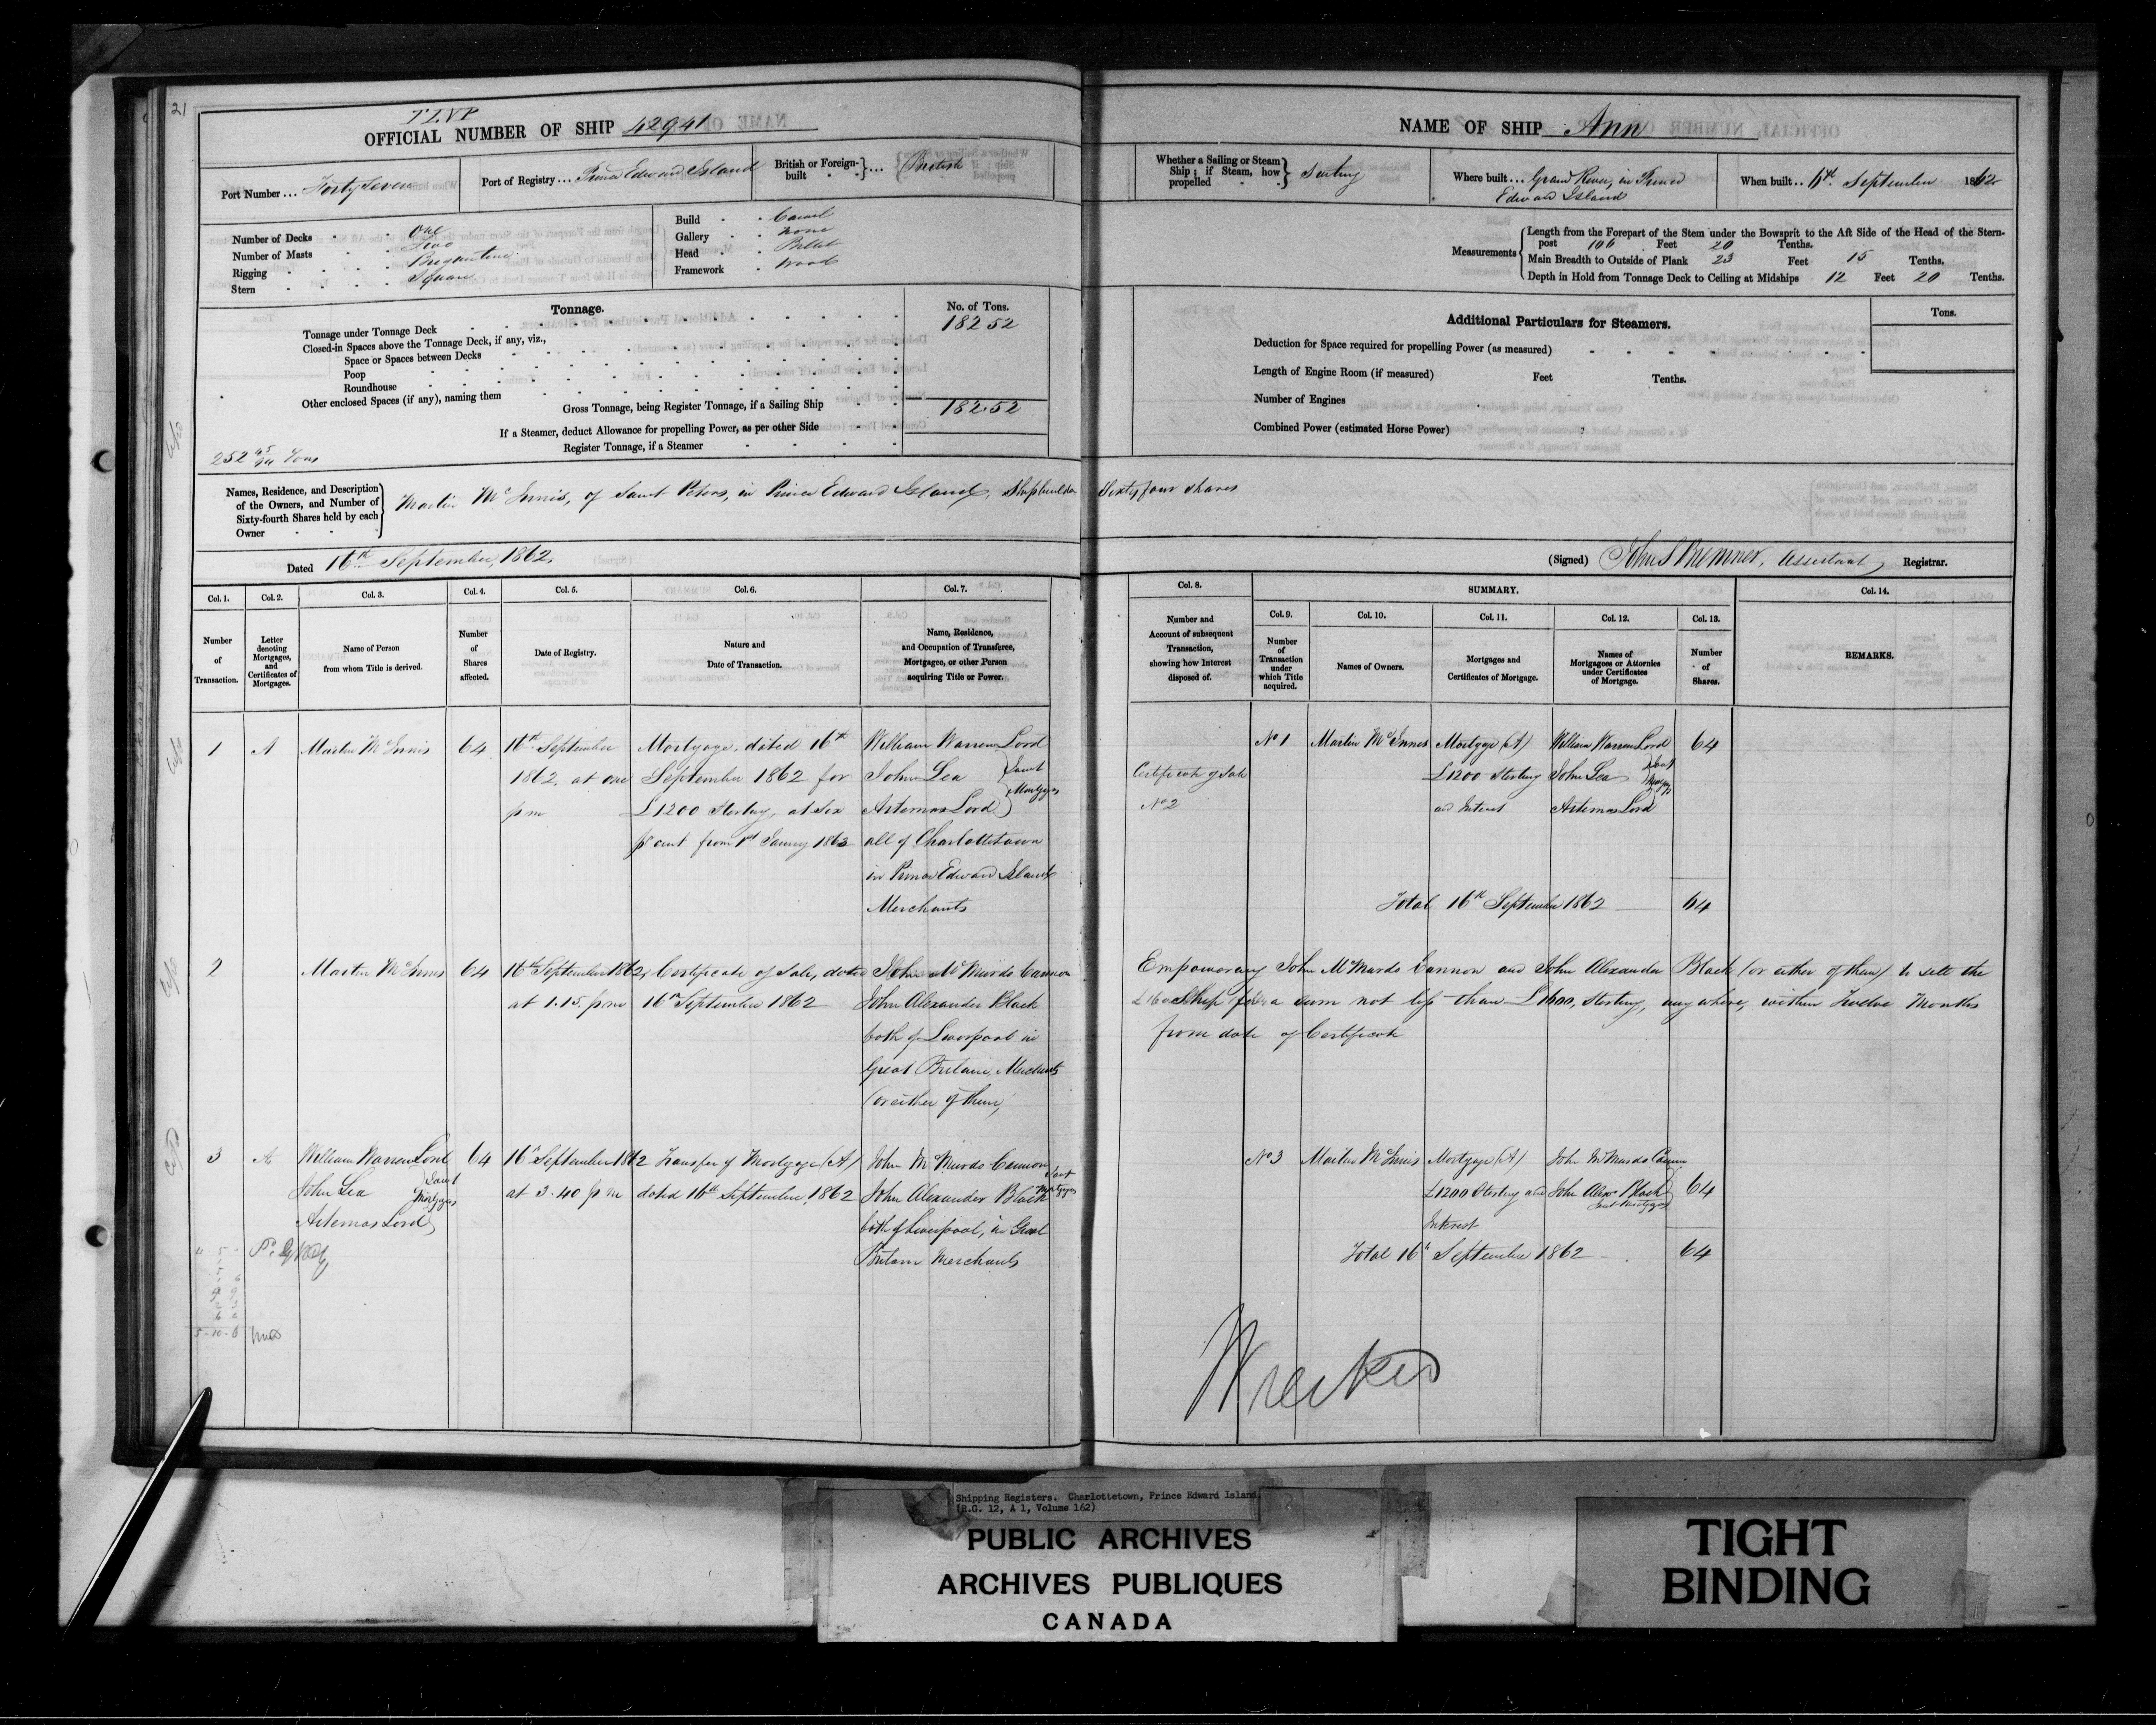 21
TLVP
OFFICIAL NUMBER OF SHIP 42941
Port Number ... Forty Seven
Port of Registry ... Prince Edward Island
British or Foreign-built ... British
Number of Decks One
Number of Masts Two
Rigging Brigantine
Stern Square
Build Carvel
Gallery None
Head Billet
Framework Wood
Tonnage.
No. of Tons.
Tonnage under Tonnage Deck 182 52
Closed-in Spaces above the Tonnage Deck, if any, viz.,
Space or Spaces between Decks
Poop
Roundhouse
Other enclosed Spaces (if any), naming them
Gross Tonnage, being Register Tonnage, if a Sailing Ship 182.52
If a Steamer, deduct Allowance for propelling Power, as per other Side
Register Tonnage, if a Steamer
252 45/94 Tons
Names, Residence, and Description of the Owners, and Number of Sixty-fourth Shares held by each Owner
Martin McInnis, of Saint Peters, in Prince Edward Island, Shipbuilder Sixty four shares
Dated 16th September, 1862.
NAME OF SHIP Ann
Whether a Sailing or Steam Ship; if Steam, how propelled Sailing
Where built ... Grand River, in Prince
Edward Island
When built .. 11th September 1862
Measurements
Length from the Forepart of the Stem under the Bowsprit to the Aft Side of the Head of the Stern-
post 106 Feet 20 Tenths.
Main Breadth to Outside of Plank 23 Feet 15 Tenths.
Depth in Hold from Tonnage Deck to Ceiling at Midships 12 Feet 20 Tenths.
Additional Particulars for Steamers.
Tons.
Deduction for Space required for propelling Power (as measured)
Length of Engine Room (if measured) Feet Tenths.
Number of Engines
Combined Power (estimated Horse Power)
(Signed) John S Bremner, Assistant Registrar.
Col. 1.
Number of Transaction.
Col. 2.
Letter denoting Mortgages, and Certificates of Mortgages.
Col. 3.
Name of Person from whom Title is derived.
Col. 4.
Number of Shares affected.
Col. 5.
Date of Registry.
Col. 6.
Nature and Date of Transaction.
Col. 7.
Name, Residence, and Occupation of Transferee, Mortgagee, or other Person acquiring Title or Power.
Col. 8.
Number and Account of subsequent Transaction, showing how Interest disposed of.
SUMMARY.
Col. 9.
Number of Transaction under which Title acquired.
Col. 10.
Names of Owners.
Col. 11.
Mortgages and Certificates of Mortgage.
Col. 12.
Names of Mortgagees or Attornies under Certificates of Mortgage.
Col. 13.
Number of Shares.
Col. 14.
REMARKS.
1 A Martin McInnis 64
16th September
1862, at one
pm
Mortgage, dated 16th
September 1862 for
£1200 Sterling, at Six
pr cent from 1st Januy 1863
William Warren Lord
John Lea
Artemas Lord
Joint
Mortgages
all of Charlottetown
in Prince Edward Island
Merchants
Certificate of Sale
No 2
No 1 Martin McInnes
Mortgage (A)
£1200 Sterling
and Interest
William Warren Lord
John Lea
Artemas Lord
Joint
64
Total 16th September 1862 64
2 Martin McInnis 64
16th September 1862,
at 1.15. pm
Certificate of Sale, dated
16th September 1862
John McMurdo Cannon
John Alexander Black
both of Liverpool in
Great Britain, Merchants
(or either of them)
Empowering John McMurdo Cannon and John Alexander Black (or either of them) to sell the
Ship for a sum not less than £1600, Sterling, anywhere, within Twelve Months
from date of Certificate
3 A William Warren Lord 64
John Lea
Artemas Lord
Joint
Mortgages
16th September 1862
at 3.40 pm
Transfer of Mortgage (A)
dated 16th September, 1862
John McMurdo Cannon
John Alexander Black
Joint
Mortgages
both of Liverpool, in Great
Britain Merchants
No 3 Martin McInnis
Mortgage (A)
£1200 Sterling and
Interest
John McMurdo Cannon
John Alexr Black
Joint Mortgages
64
Total 16th September 1862 64
5-10-6
Wrecked
Shipping Registers. Charlottetown, Prince Edward Island.
(R.G. 12, A 1, Volume 162)
PUBLIC ARCHIVES
ARCHIVES PUBLIQUES
CANADA
TIGHT
BINDING